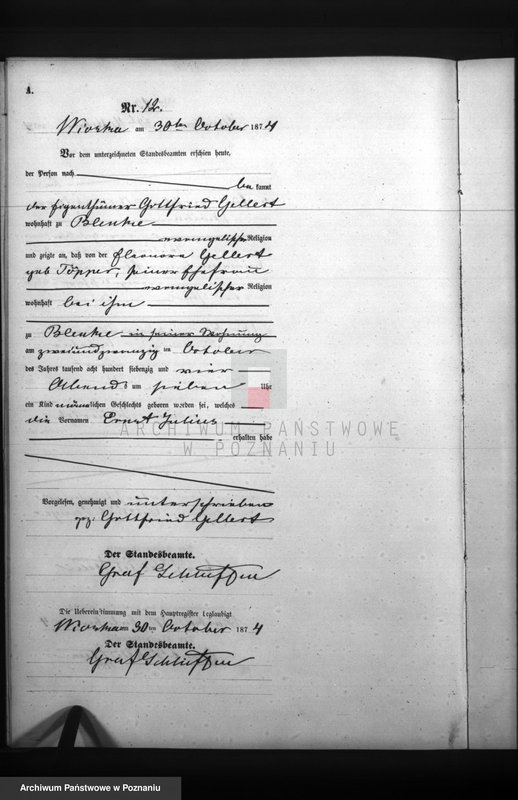 A.
Nr. 12.
Wioska am 30ten October 1874
Vor dem unterzeichneten Standesbeamten erschien heute,
der Person nach
bekannt
der Eigenthümer Gottfried Gellert
wohnhaft zu Blenke
evangelischer Religion
und zeigte an, daß von der Eleonora Gellert
geb Töpper, seiner Ehefrau
evangelischer Religion
wohnhaft bei ihm
zu Blenke in seiner Wohnung
am zweiundzwanzig ten October
des Jahrs tausend acht hundert siebenzig und vier
Abends um sieben Uhr
ein Kind männlichen Geschlechts geboren worden sei, welches
die Vornamen Ernst Julius
erhalten habe
ARCHIWUM PAŃSTWOWE
W POZNANIU
Vorgelesen, genehmigt und unterschrieben
gez: Gottfried Gellert
Der Standesbeamte.
Graf
Die Uebereinstimmung mit dem Hauptregister beglaubigt
Wioska am 30 ten October 1874
Der Standesbeamte.
Graf
Archiwum Państwowe w Poznaniu